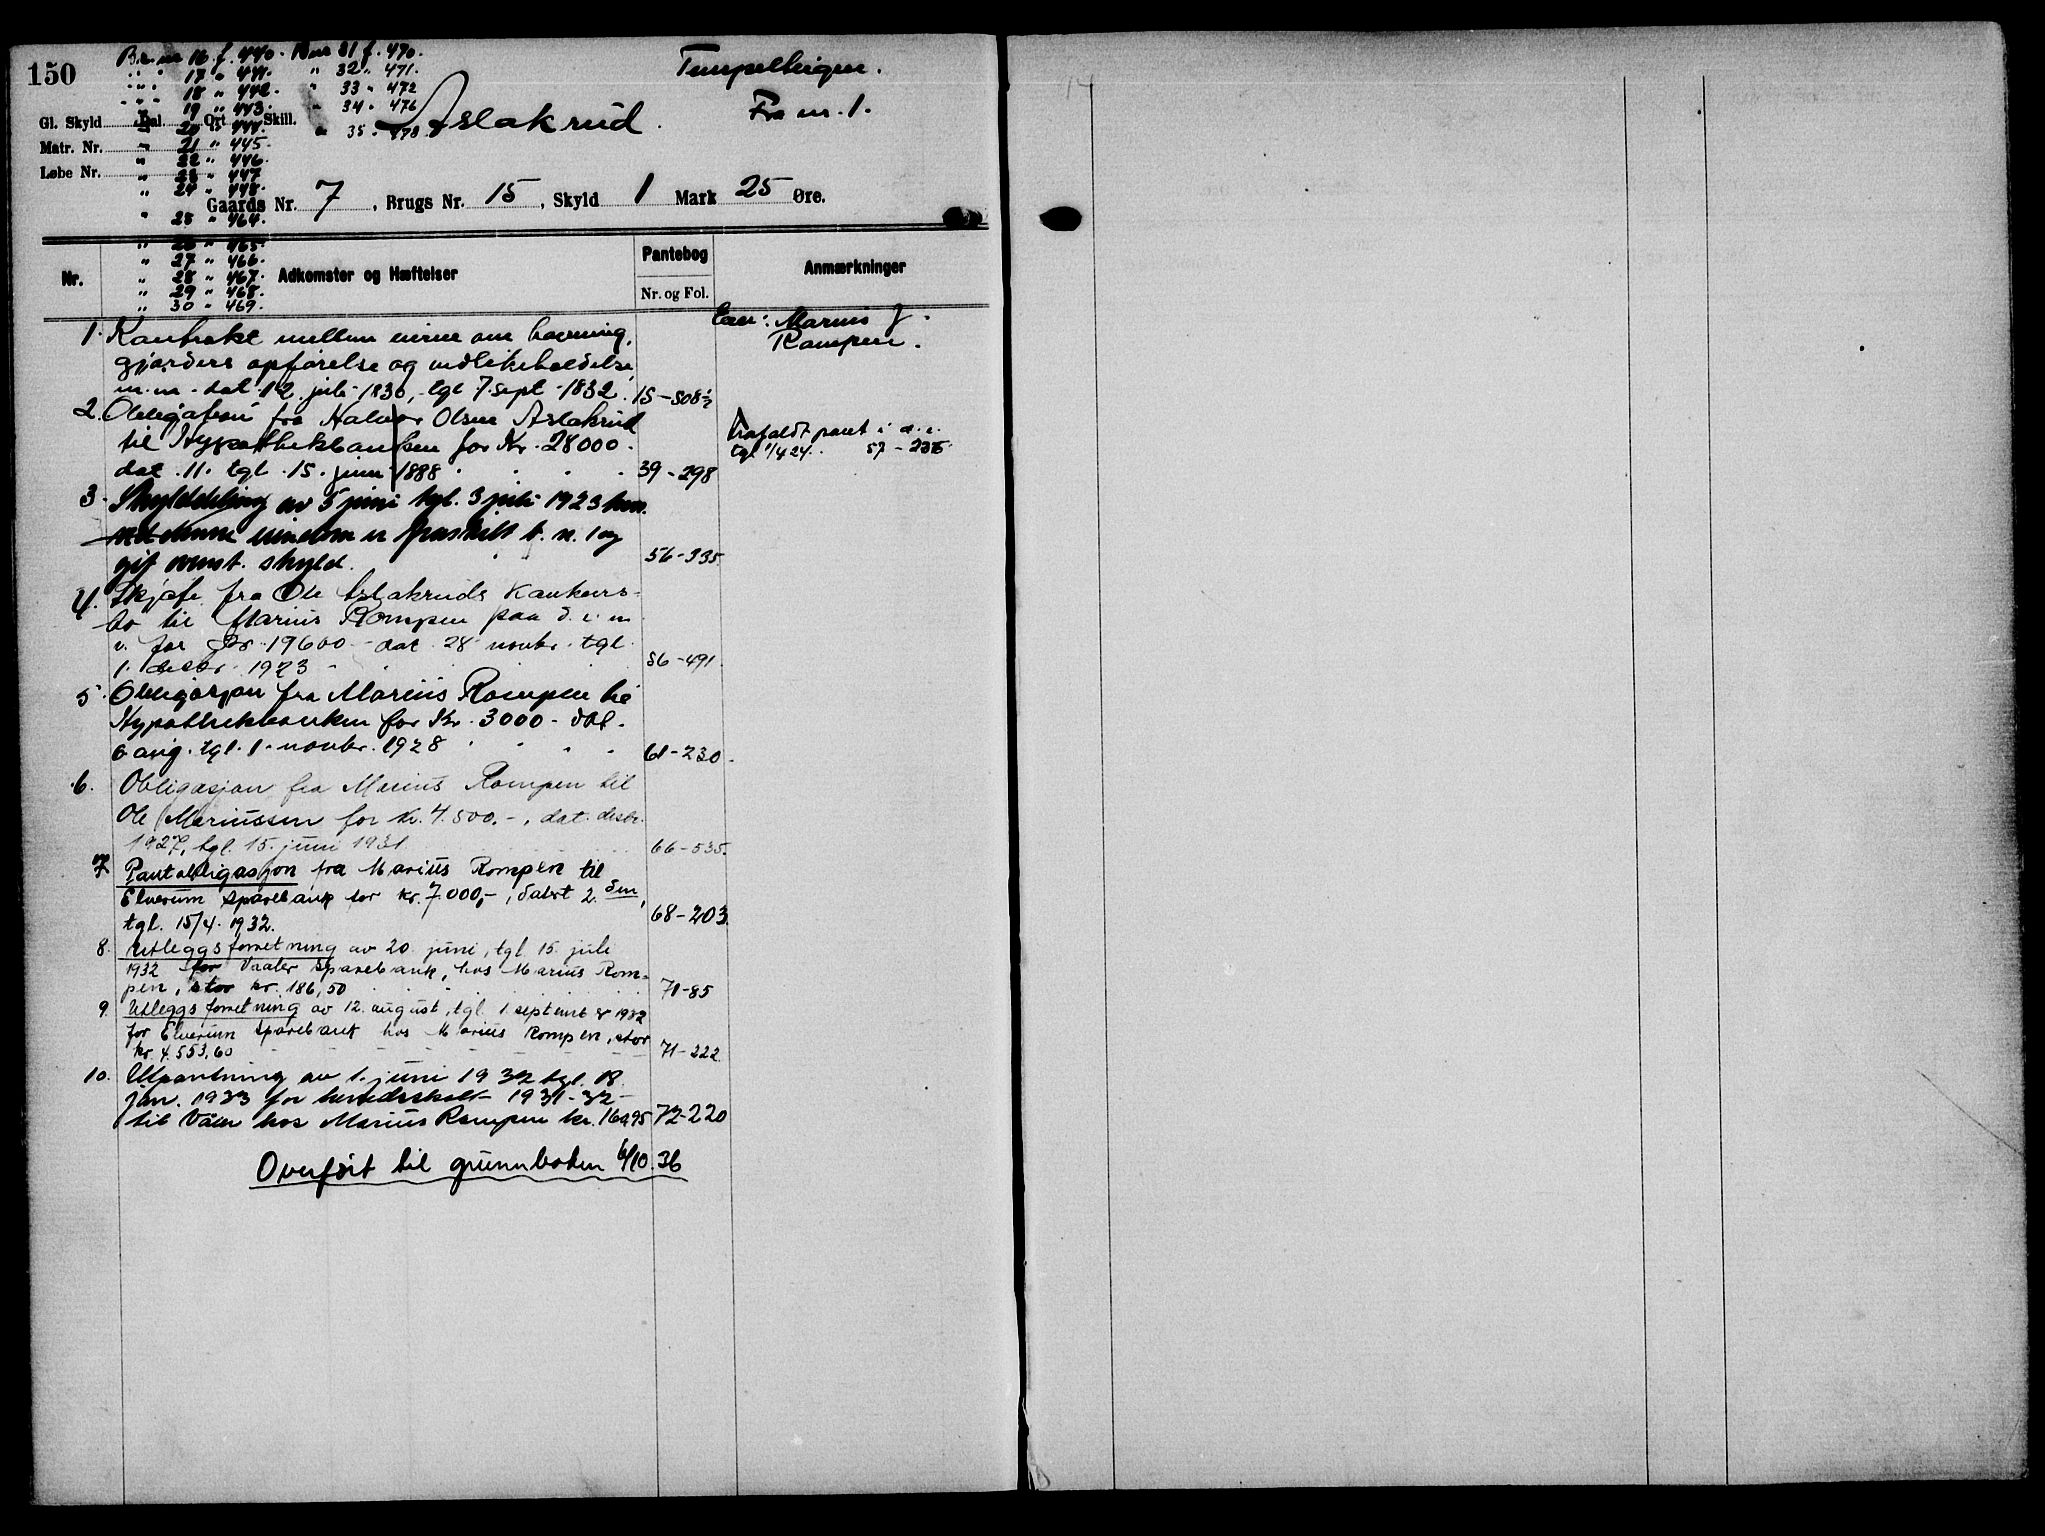 150
Br. nr 16 f. 440. Bnr 31 f. 470.
" " 17 " 441. " 32 " 471.
" " 18 " 442. " 33 " 472
" " 19 " 443. " 34 " 476
" 20 " 444. " 35 " 478
" 21 " 445.
" 22 " 446.
" 23 " 447
" 24 " 448.
" 25 " 464.
" 26 " 465.
" 27 " 466.
" 28 " 467.
" 29 " 468.
" 30 " 469.
Gl. Skyld Dal. Ort Skill.
Matr. Nr.
Løbe Nr.
Aslakrud.
Fra nr. 1.
Gaards Nr. 7, Brugs Nr. 15, Skyld 1 Mark 25 Øre.
Nr.
Adkomster og Hæftelser
Pantebog
Nr. og Fol.
Anmærkninger
Eier: Marius J.
Rompen.
1. Kontrakt mellem eierne om havning,
gjærders opførelse og vedlikeholdelse
m.m. dat. 12 juli 1830, tgl 7. sept 1832. 15-508½
2. Obligation fra Halvor Olsen Aslakrud
til Hypothekbanken for Kr. 28000.
dat. 11. tgl. 15. juni 1888 39-298
frafaldt pant i d. e.
tgl 1/4 24. 57-236
3. Skylddeling av 5 juni tgl. 3 juli 1923 hvor
ved denne eiendom er fraskilt b. n. 1 og
git ovenst. skyld. 56-335.
4. Skjøte fra Ole Aslakruds Konkurs-
bo til Marius Rompen paa d. e. m
v. for Kr. 19600 - dat. 28 novbr. tgl.
1. desbr. 1923 56-491.
5. Obligasjon fra Marius Rompen til
Hypothekbanken for Kr. 3000 - dat.
6 aug. tgl. 1. novbr. 1928 61-230.
6. Obligasjon fra Marius Rompen til
Ole Mariussen for kr. 4.500.-, dat. desbr.
1927, tgl. 15. juni 1931 66-535.
7 Pantobligasjon fra Marius Rompen til
Elverum Sparebank for kr. 7.000,-, datert 2. ds.,
tgl. 15/4. 1932. 68-203.
8. Utleggsforretning av 20. juni, tgl. 15. juli
1932 for Vaaler Sparebank, hos Marius Rom-
pen, stor kr. 186,50 71-85
9. Utleggsforretning av 12. august, tgl. 1. september 1932
for Elverum Sparebank hos Marius Rompen, stor
kr. 4.553,60 71-222
10. Utpantning av 1. juni 1932 tgl. 18.
jan. 1933 for herredsskatt 1931-32
til Våler hos Marius Rompen kr. 169,95 72-220
Overført til grunnboken 6/10.36